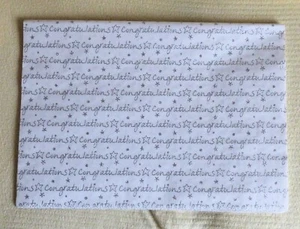 Congratulations ☆ Congratulations ☆ Congratulations
ations ☆ Congratulations ☆ Congratulations ☆ Congratulations
Congratulations ☆ Congratulations ☆ Congratulations
ations ☆ Congratulations ☆ Congratulations ☆ Congratulations
Congratulations ☆ Congratulations ☆ Congratulations
ations ☆ Congratulations ☆ Congratulations ☆ Congratulations
Congratulations ☆ Congratulations ☆ Congratulations
ations ☆ Congratulations ☆ Congratulations ☆ Congratulations
Congratulations ☆ Congratulations ☆ Congratulations
ations ☆ Congratulations ☆ Congratulations ☆ Congratulations
Congratulations ☆ Congratulations ☆ Congratulations